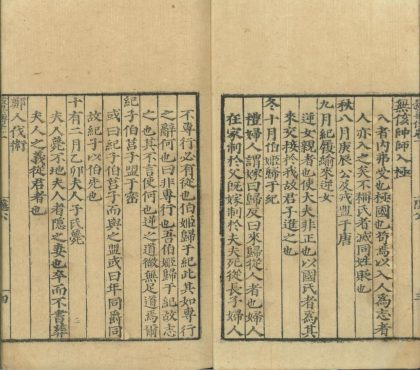 無侅帥師入極
入者內弗受也極國也苟焉以入人為志者
人亦入之矣不稱氏者滅同姓貶也
秋八月庚辰公及戎盟于唐
九月紀履緰來逆女
逆女親者也使大夫非正也以國氏者為其
來交接於我故君子進之也
冬十月伯姬歸于紀
禮婦人謂嫁曰歸反曰來歸從人者也婦人
在家制於父既嫁制於夫夫死從長子婦人
不專行必有從也伯姬歸于紀此其如專行
之辭何也曰非專行也吾伯姬歸于紀故志
之也其不言使何也逆之道微無足道焉爾
紀子伯莒子盟于密
或曰紀子伯莒子而與之盟或曰年同爵同
故紀子以伯先也
十有二月乙卯夫人子氏薨
夫人薨不地夫人者隱之妻也卒而不書葬
夫人之義從君者也
鄭人伐衛